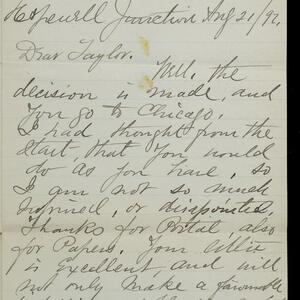 Hopewell Junction Aug 21/92.
Dear Taylor.
Well, the
decision is made, and
you go to Chicago.
I had thought from the
start, that you would
do as you have, so
I am not so much
surprised, or disapointed,
Thanks for Postal, also
for Papers. Your
is Excellent, and will
not only make a favorable